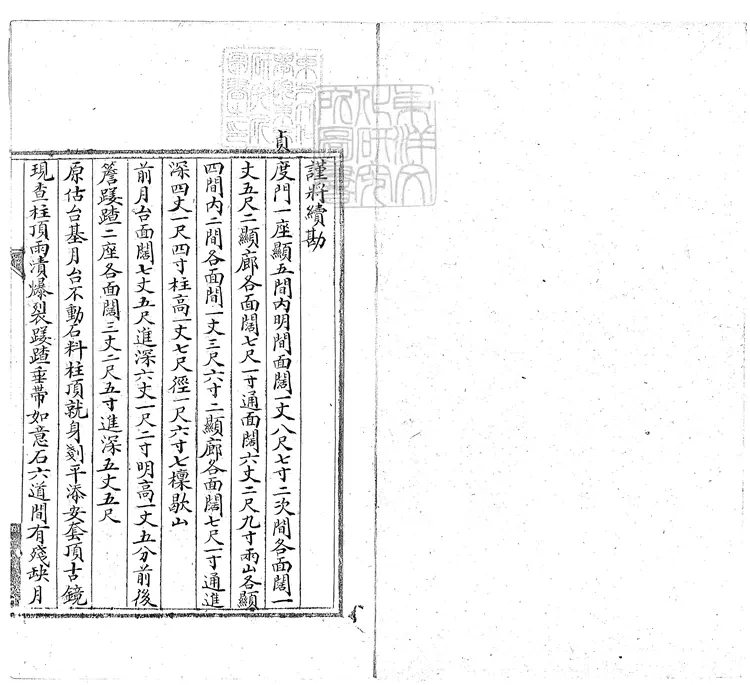 謹將續勘
貞度門一座顯五間內明間面闊一丈八尺七寸二次間各面闊一
丈五尺二顯廊各面闊七尺一寸通面闊六丈二尺九寸兩山各顯
四間內二間各面間一丈三尺六寸二顯廊各面闊七尺一寸通進
深四丈一尺四寸柱高一丈七尺徑一尺六寸七檁歇山
前月台面闊七丈五尺進深六丈一尺二寸明高一丈五分前後
簷踐䠡二座各面闊三丈二尺五寸進深五丈五尺
原估台基月台不動石料柱頂就身剗平添安套頂古鏡
現查柱頂雨漬爆裂踐䠡垂帶如意石六道間有殘缺月